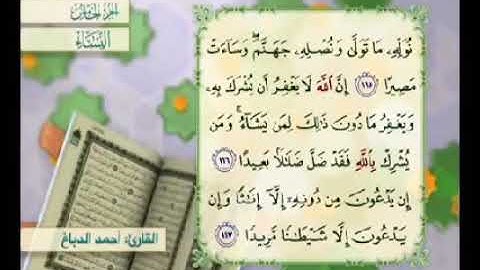 الجزء الخامس
النساء
نُوَلِّهِۦ مَا تَوَلَّىٰ وَنُصْلِهِۦ جَهَنَّمَ ۖ وَسَآءَتْ
مَصِيرًا ﴿١١٥﴾ إِنَّ ٱللَّهَ لَا يَغْفِرُ أَن يُشْرَكَ بِهِۦ
وَيَغْفِرُ مَا دُونَ ذَٰلِكَ لِمَن يَشَآءُ ۚ وَمَن
يُشْرِكْ بِٱللَّهِ فَقَدْ ضَلَّ ضَلَٰلًۢا بَعِيدًا ﴿١١٦﴾
إِن يَدْعُونَ مِن دُونِهِۦٓ إِلَّآ إِنَٰثًا وَإِن
يَدْعُونَ إِلَّا شَيْطَٰنًا مَّرِيدًا ﴿١١٧﴾
القارئ: أحمد الدباغ